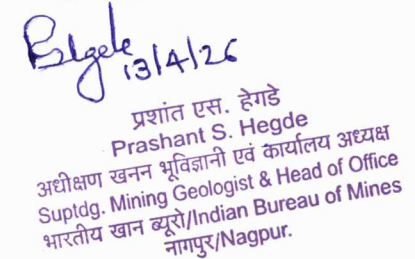 13/4/26
प्रशांत एस. हेगडे
Prashant S. Hegde
अधीक्षण खनन भूविज्ञानी एवं कार्यालय अध्यक्ष
Suptdg. Mining Geologist & Head of Office
भारतीय खान ब्यूरो/Indian Bureau of Mines
नागपुर/Nagpur.